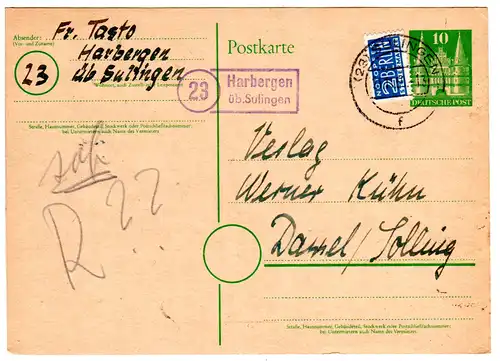 Absender:
(Vor- und Zuname)
Fr. Tasto
Harbergen
23
üb. Sulingen
Wohnort, auch Zustell- oder Leitpostamt
Straße, Hausnummer, Gebäudeteil, Stockwerk oder Postschließfachnummer;
bei Untermietern auch Name des Vermieters
R ??
Postkarte
23
Harbergen
üb. Sulingen
NOTOPFER
2 BERLIN
STEUERMARKE
(23) SULINGEN
f
10
DEUTSCHE POST
Verlag
Werner Kühn
Dassel/Solling
Straße, Hausnummer, Gebäudeteil, Stockwerk oder Postschließfachnummer;
bei Untermietern auch Name des Vermieters